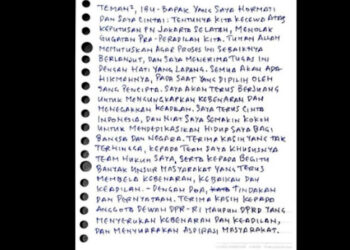 TEMAN², IBU-BAPAK YANG SAYA HORMATI
DAN SAYA CINTAI: TENTUNYA KITA KECEWA ATAS
KEPUTUSAN PN JAKARTA SELATAN, MENOLAK
GUGATAN PRA-PERADILAN KITA. TUHAN ALLAH
MEMUTUSKAN AGAR PROSES INI SEBAIKNYA
BERLANJUT, DAN SAYA MENERIMA TUGAS INI
DENGAN HATI YANG LAPANG. SEMUA AKAN ADA
HIKMAHNYA, PADA SAAT YANG DIPILIH OLEH
SANG PENCIPTA. SAYA AKAN TERUS BERJUANG
UNTUK MENGUNGKAPKAN KEBENARAN DAN
MENEGAKKAN KEADILAN. SAYA TERUS CINTA
INDONESIA, DAN NIAT SAYA SEMAKIN KOKOH
UNTUK MENDEDIKASIKAN HIDUP SAYA BAGI
BANGSA DAN NEGARA. TERIMA KASIH YANG TAK
TERHINGGA, KEPADA TEAM SAYA KHUSUSNYA
TEAM HUKUM SAYA, SERTA KEPADA BEGITU
BANYAK UNSUR MASYARAKAT YANG TERUS
MEMBELA KEBENARAN, KEBAIKAN DAN
KEADILAN. - DENGAN DOA, TINDAKAN
DAN PERNYATAAN. TERIMA KASIH KEPADA
ANGGOTA DEWAN DPR-RI MAUPUN DPRD YANG
MENYERUKAN KEBENARAN DAN KEADILAN,
DAN MENYUARAKAN ASPIRASI MASYARAKAT.